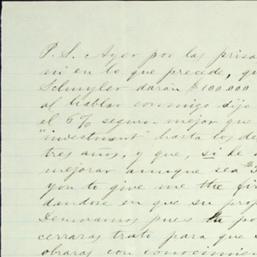 P.S. Ayer por las prisa
en lo que precede, qu
Schuyler daran $100.000
al hablar conmigo dijo
el 6% seguro mejor que
"investment" hasta los de
tres años, y que, si he
mejorar aunque sea
you to give me the fir
dandose en que su prop
pues
cerraras trato para que
obraras con conocimien